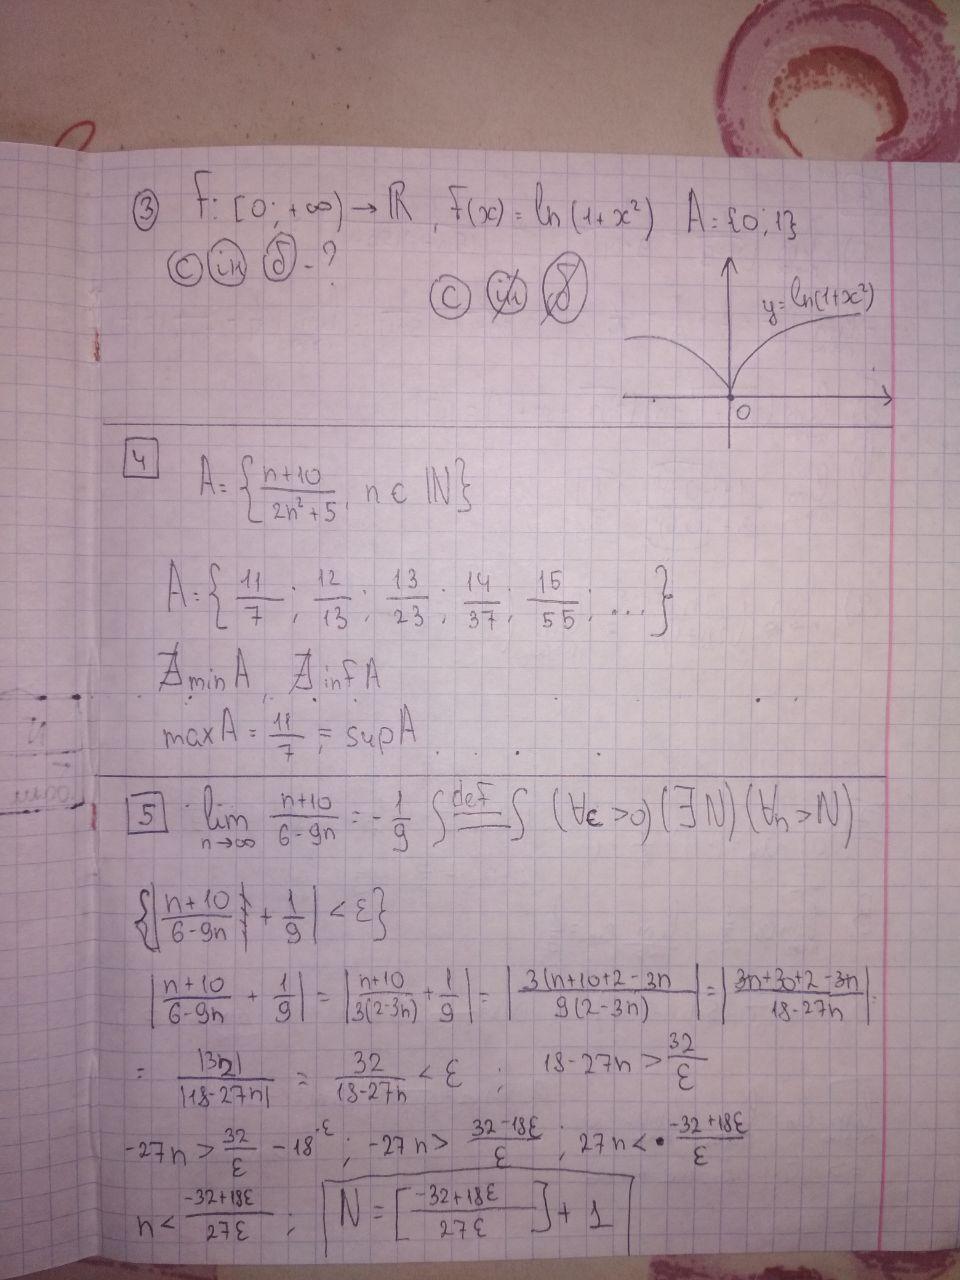 ③ F: [0; +∞) → ℝ, F(x) = ln(1+x²) A = {0; 1}
Ⓒ (ін) (б) - ?
Ⓒ (ін) (б)
y = ln(1+x²)
0
4
A = { (n+10)/(2n²+5), n ∈ ℕ }
A = { 11/7; 12/13; 13/23; 14/37; 15/55; ... }
∄ min A, ∄ inf A
max A = 11/7 = sup A
5 lim n→∞ (n+10)/(6-9n) = -1/9 ∫ def ∫ (∀ε>0)(∃N)(∀n>N)
{ |(n+10)/(6-9n) + 1/9| < ε }
|(n+10)/(6-9n) + 1/9| = |(n+10)/(3(2-3n)) + 1/9| = |(3(n+10+2-3n)/(9(2-3n))| = |(3n+30+2-3n)/(18-27n)|
= |32|/|18-27n| = 32/(18-27n) < ε ; 18-27n > 32/ε
-27n > 32/ε - 18·ε ; -27n > (32-18ε)/ε ; 27n < (-32+18ε)/ε
n < (-32+18ε)/(27ε) ; N = [(-32+18ε)/(27ε)] + 1